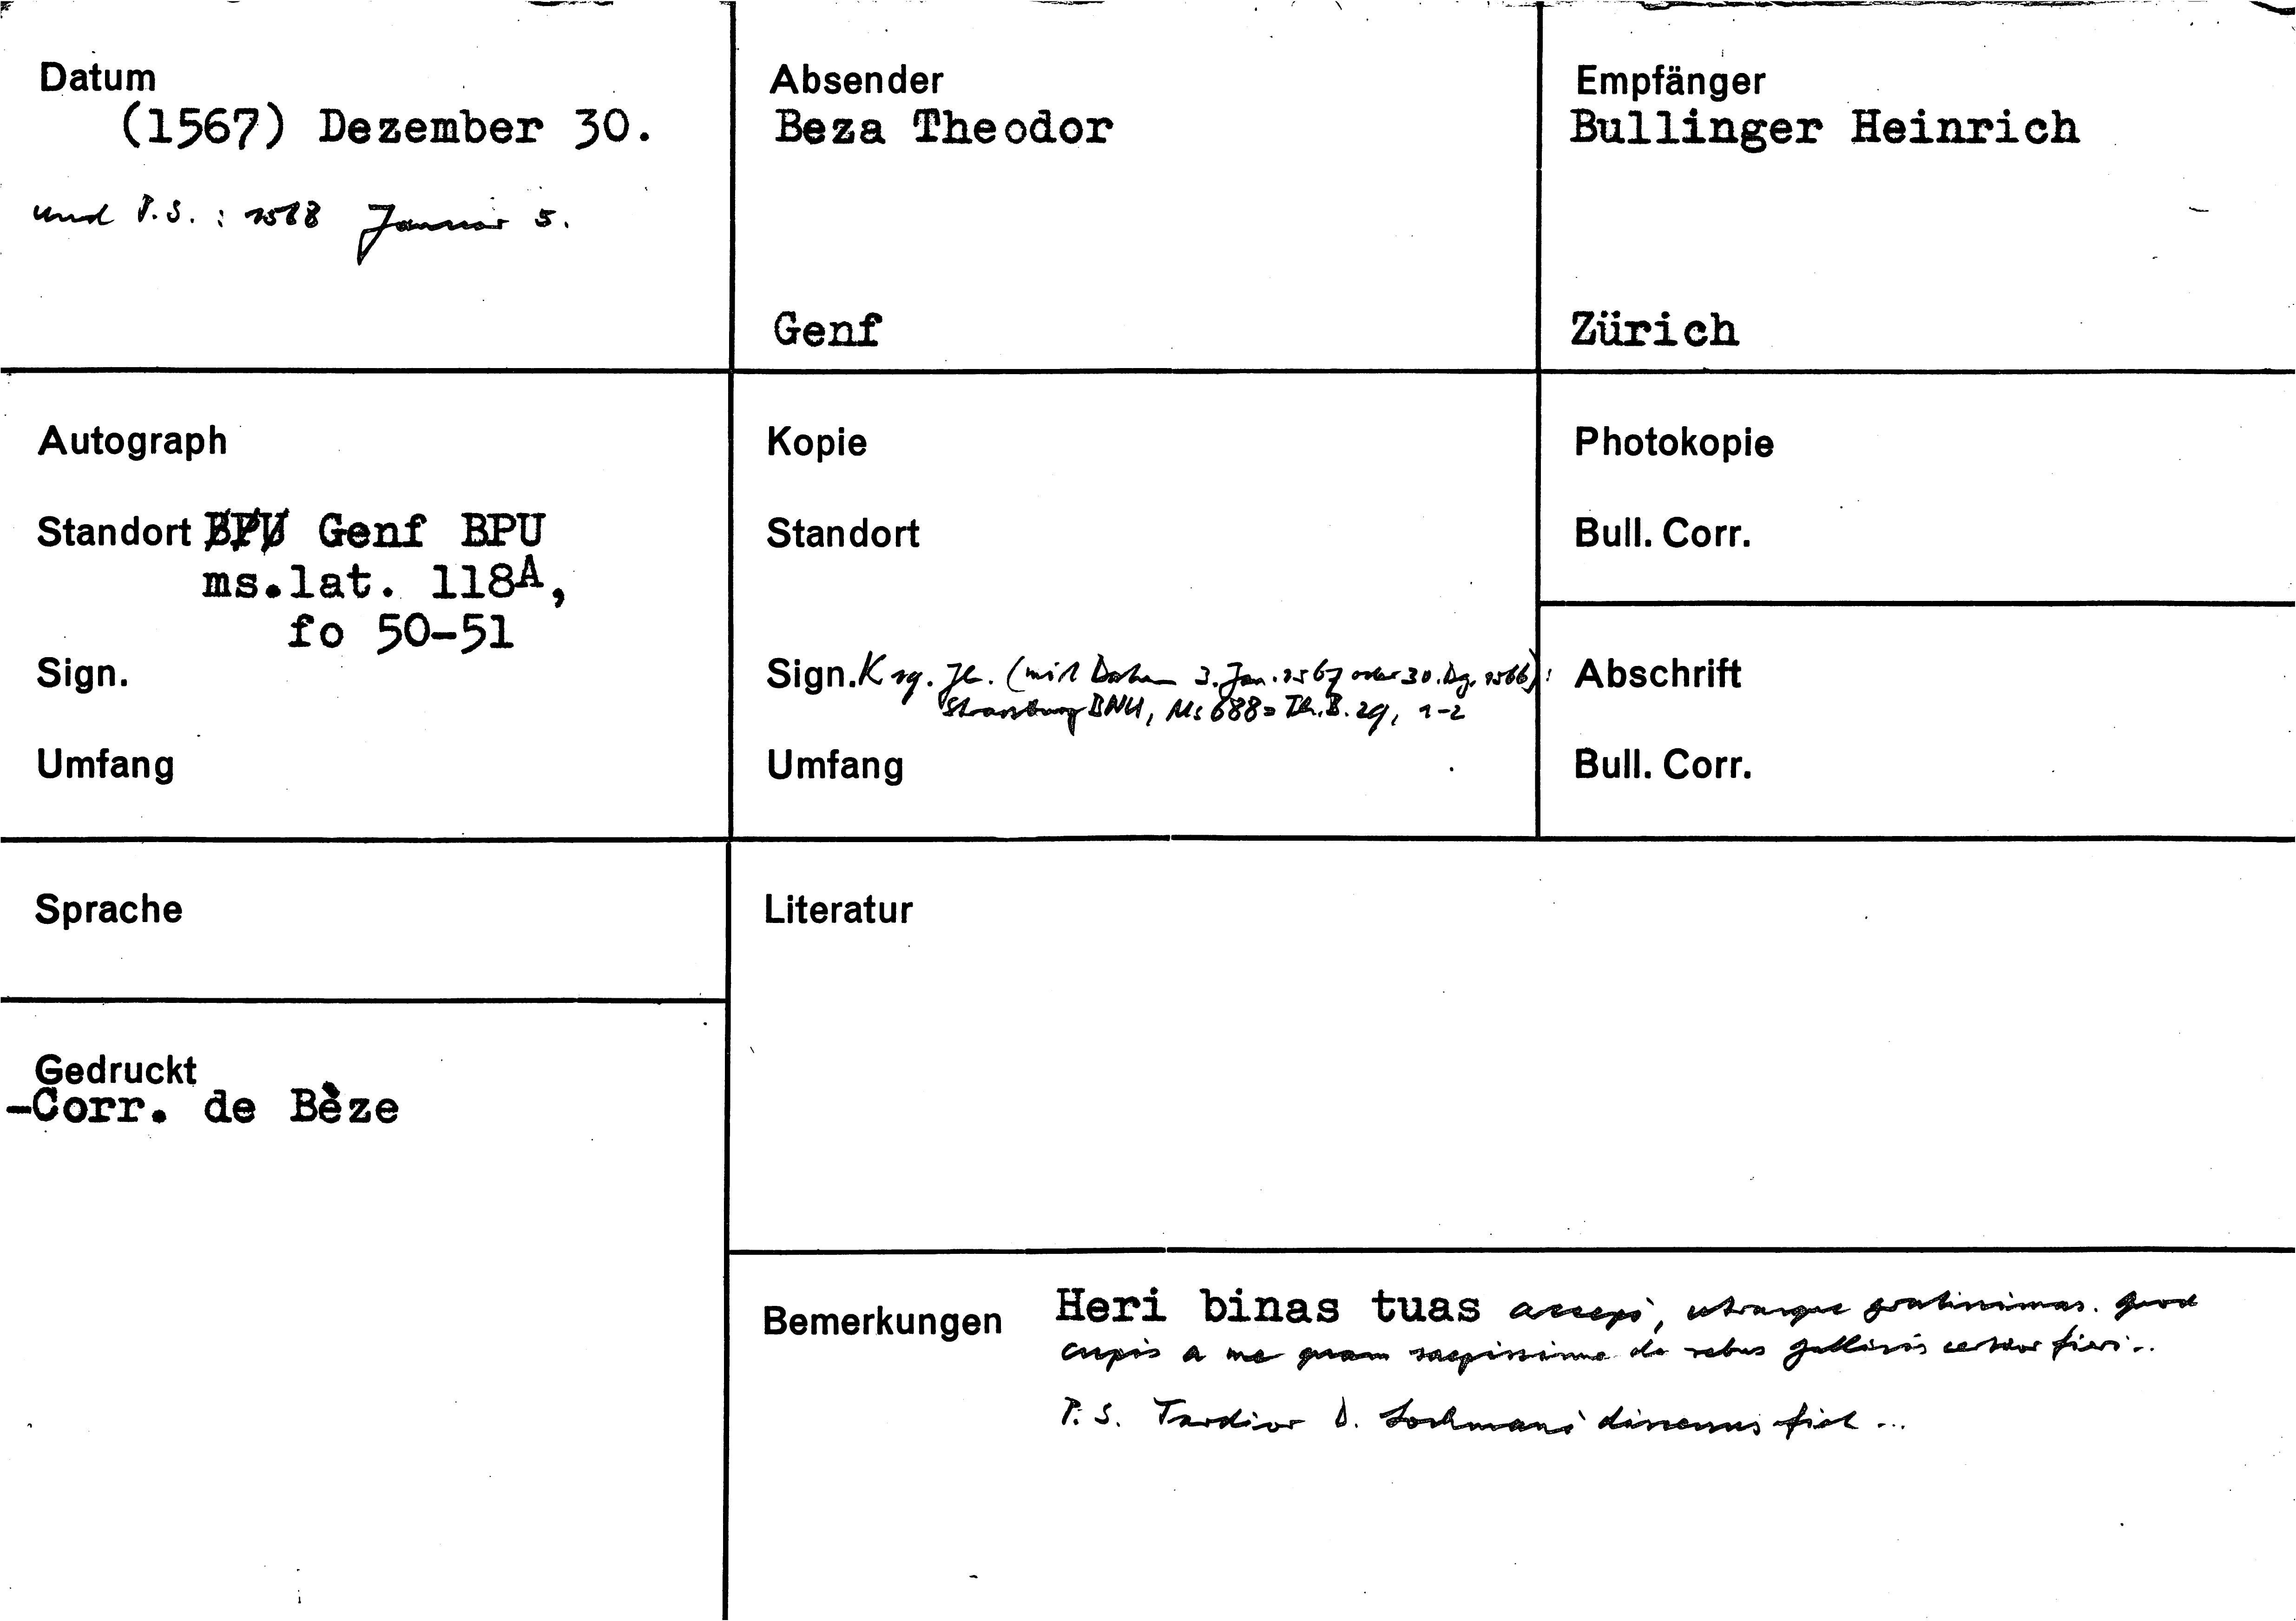 Datum
(1567) Dezember 30.
und P.S.: 1568 Januar 5.
Absender
Beza Theodor
Genf
Empfänger
Bullinger Heinrich
Zürich
Autograph
Standort BPU Genf BPU
ms.lat. 118A,
fo 50-51
Sign.
Umfang
Kopie
Standort
Sign. (mit Datum 3. Jan. 1567 oder 30. Dez. 1566):
Strassburg BNU, Ms 688 = Th.B. 29, 1-2
Umfang
Photokopie
Bull. Corr.
Abschrift
Bull. Corr.
Sprache
Gedruckt
-Corr. de Bèze
Literatur
Bemerkungen Heri binas tuas accepi, utrasque gratissimas. Quod
cupis a me quam saepissime de rebus Gallicis certior fieri...
P.S. Tardior D. discessus fiet ...